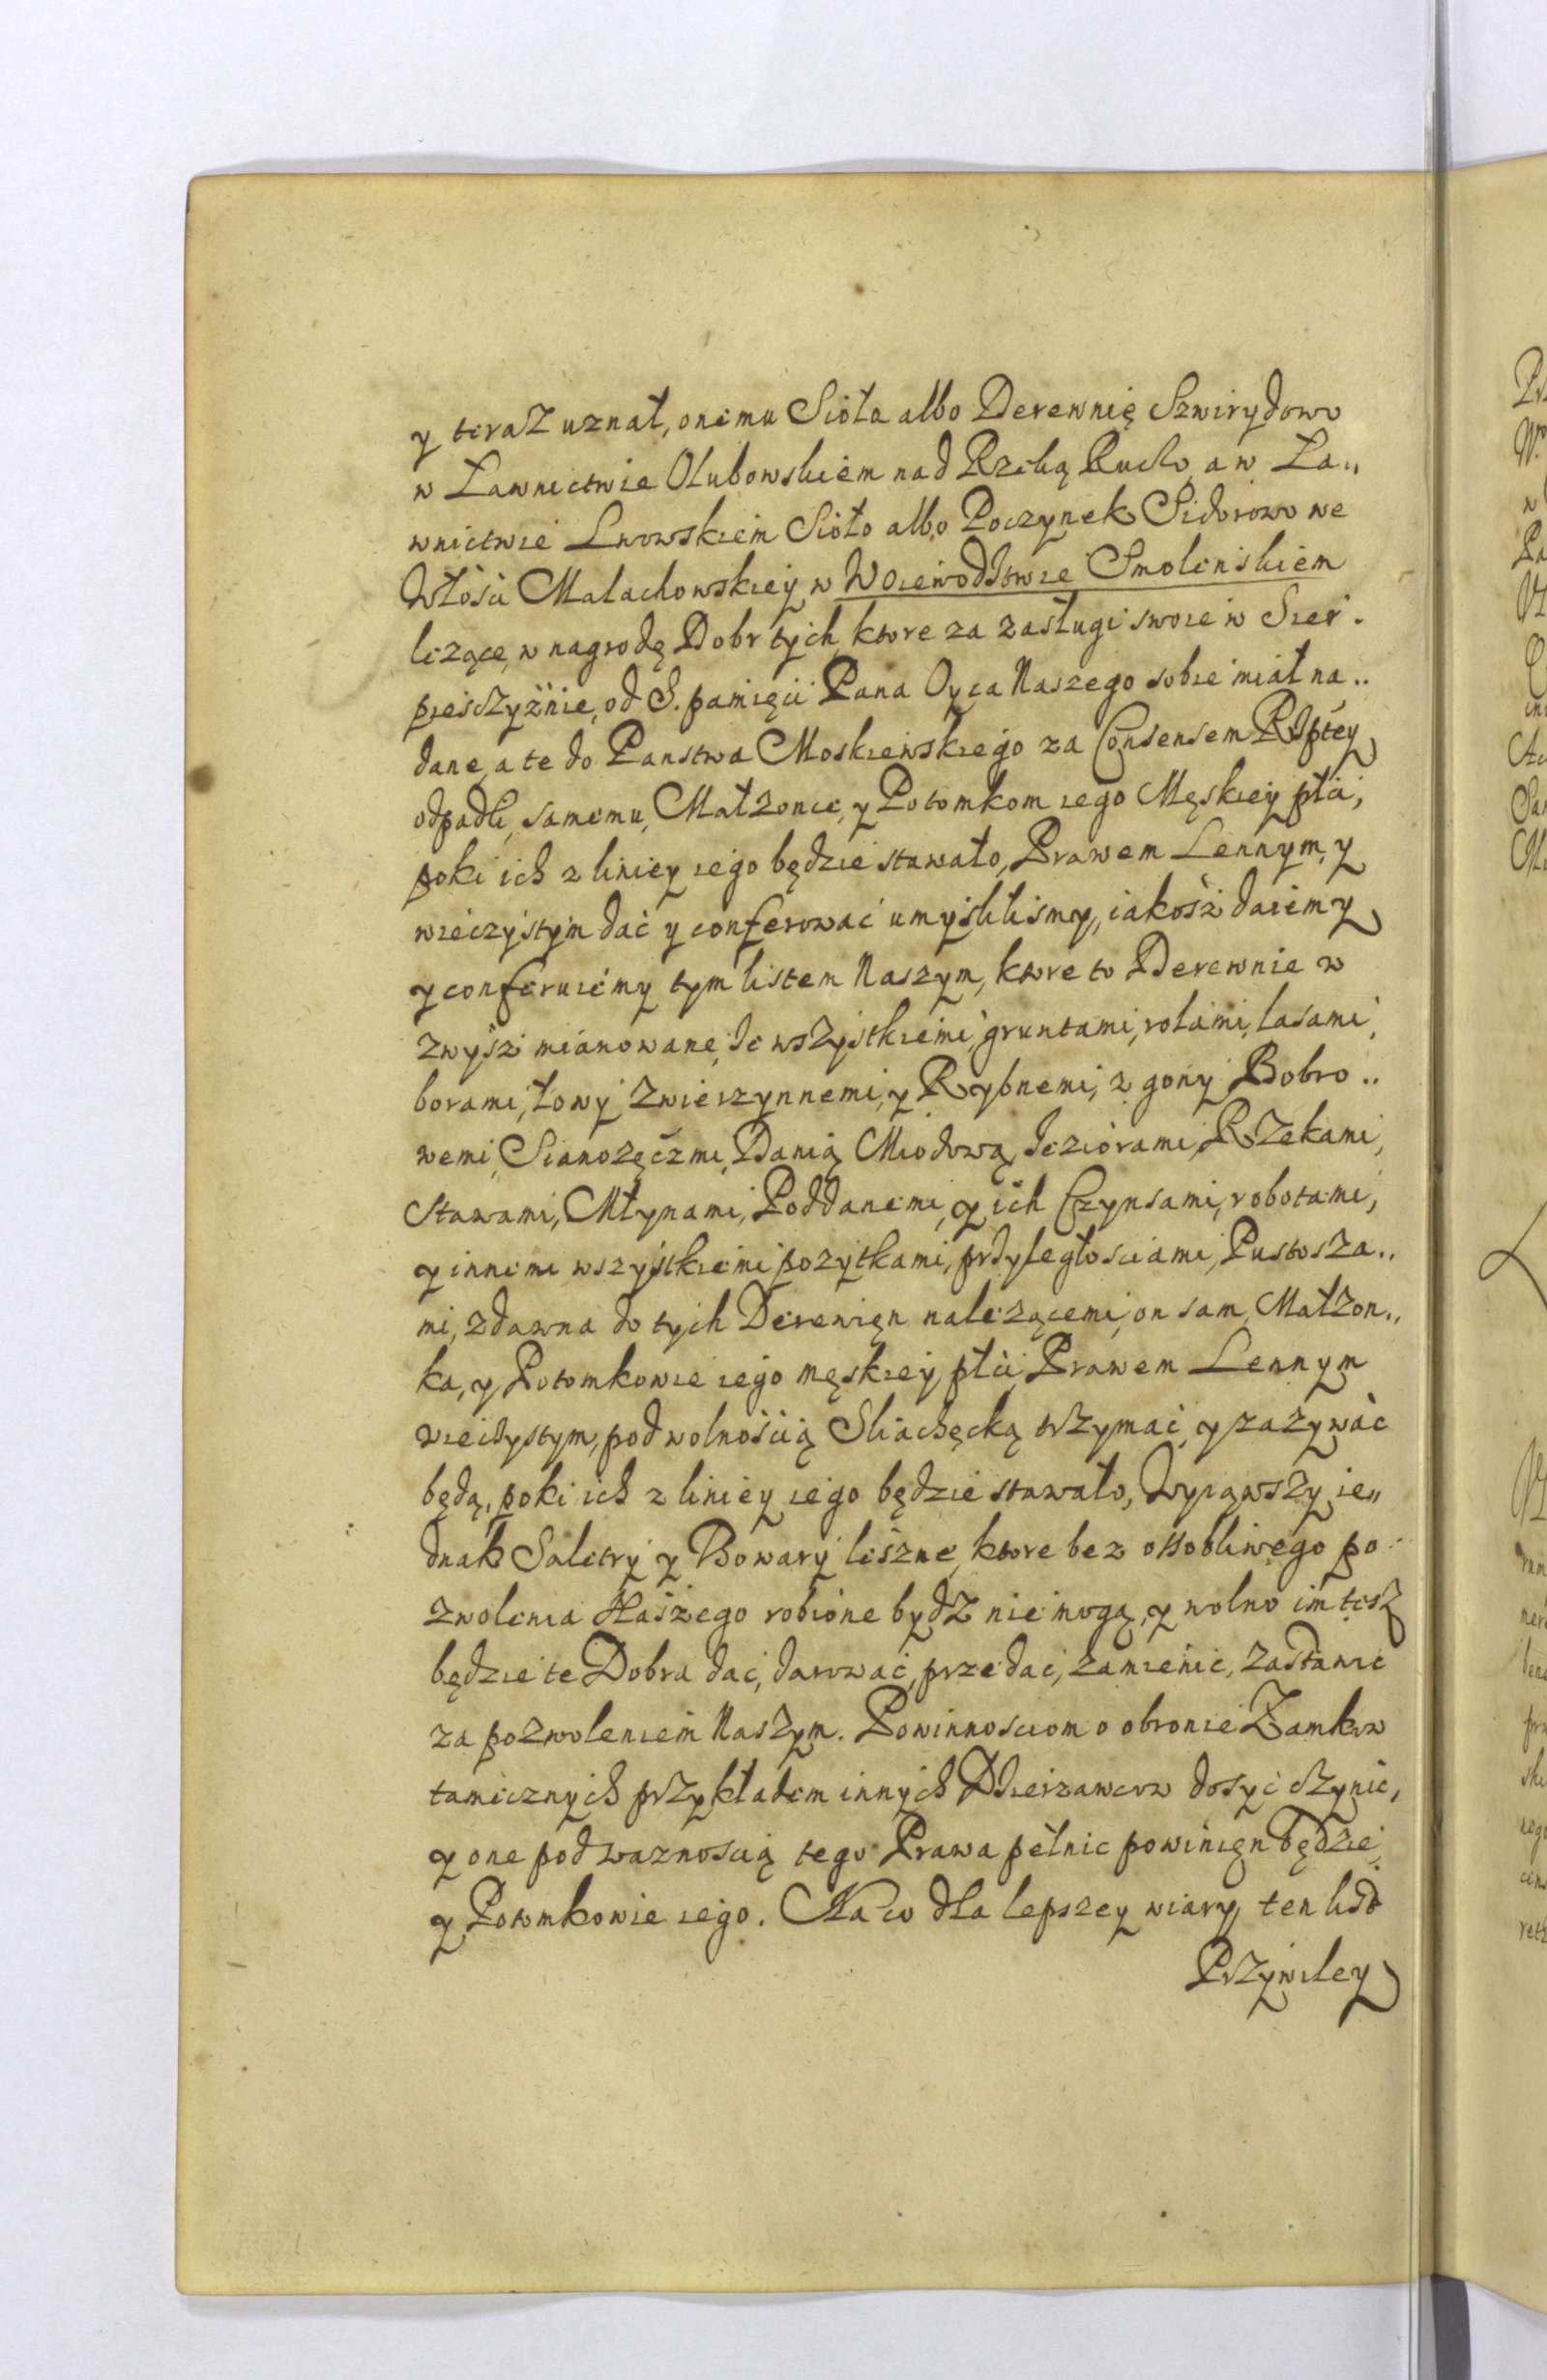 y teraz uznał, onemu Sioła albo Derewnię Szwirydowo
w Ławnictwie Olubowskiem nad Rzeką Rucho, a w Ła„
wnictwie Lwowskiem Sioło albo Poczynek Sidorowo we
Włości Małachowskiey w Woiewodstwie Smolenskiem
liczące, w nagrodę Dobr tych, ktore za zasługi swoie w Sier.
piesczyznie, od S. pamięci Pana Oyca Naszego sobie miał na..
dane, a te do Panstwa Moskiewskiego za Consensem Rzptey
odpadli, samemu, Małzonce, y Potomkom iego Męskiey płci,
poki ich z liniey iego będzie stawało, Prawem Lennym, y
wieczystym dać y conferować umyśliliśmy, iakosz daiemy
y conferuiemy tym listem Naszym, ktore to Derewnie w
zwysz mianowane, ze wszystkiemi gruntami, rolami, lasami,
borami, łowy Zwierzynnemi, y Rybnemi, z gony Bobro..
wemi, Sianozęćzmi, Danią Miodową, Ieziorami, Rzekami,
Stawami, Młynami, Poddanemi, y ich Czynsami, robotami,
y innemi wszystkiemi pozytkami, przyległosciami, Pustosza..
mi, zdawna do tych Derewien nalezącemi, on sam, Małzon..
ka, y Potomkowie iego męskiey płci, Prawem Lennym
wieczystym, pod wolnością Sliachęcką trzymać, y zazywać
będą, poki ich z liniey iego będzie stawało, Wyiąwszy ie„
dnak Saletry y Bowary leszne, ktore bez ossobliwego po
zwolenia Naszego robione bydz nie mogą, y wolno im tesz
będzie te Dobra dać, darować, przedać, zamienić, zastawić
za pozwoleniem Naszym. Powinnosciom o obronie Zamkow
tamecznych przykładem innych Dzierzawcow dosyć czynic,
y one pod waznoscią tego Prawa pełnic powinien będzie,
y Potomkowie iego. Na co dla lepszey wiary ten list
Przywiley